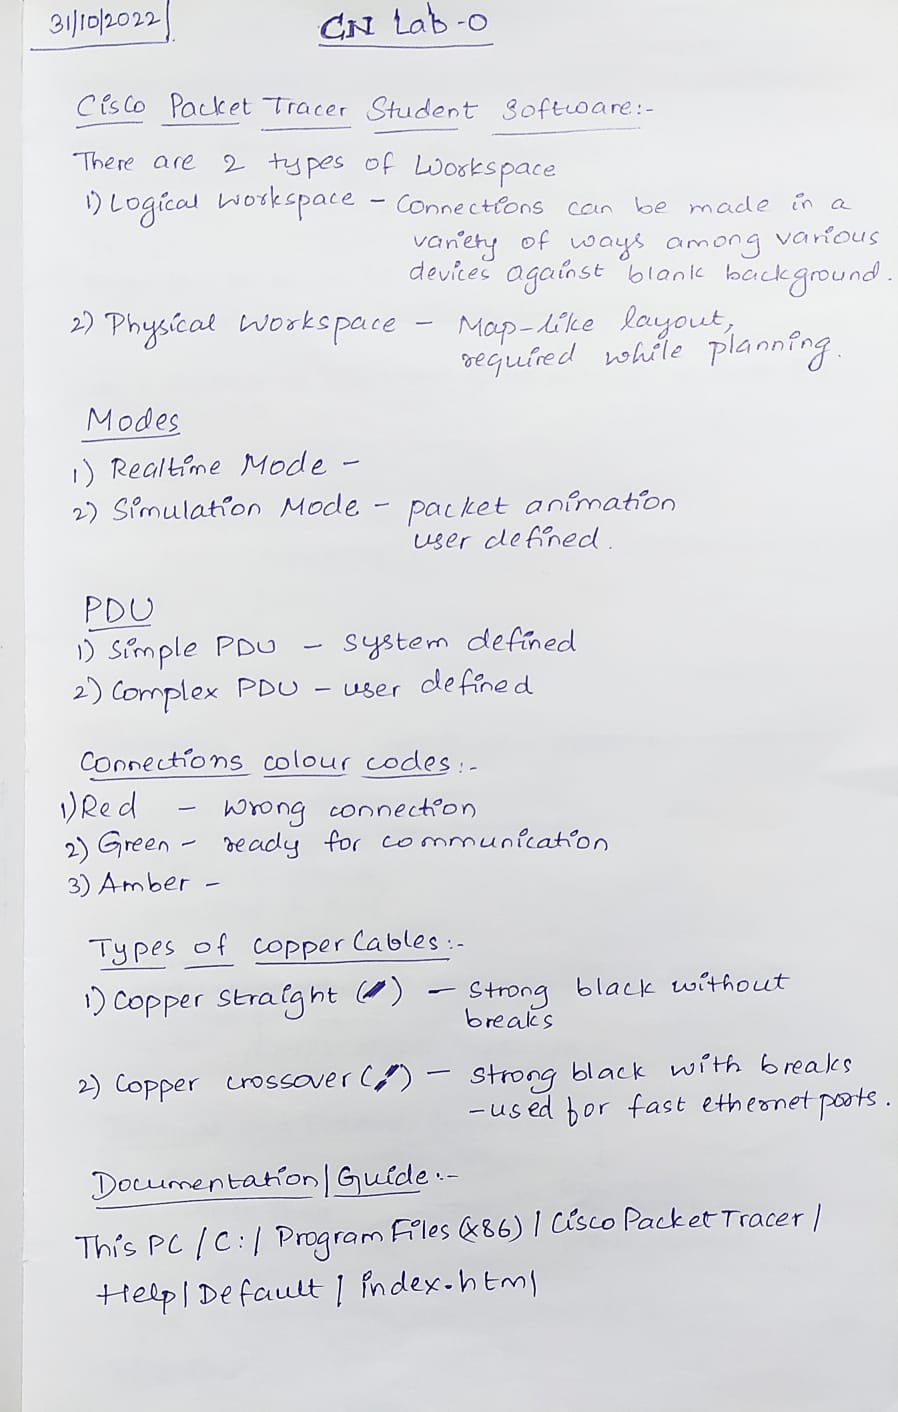 31/10/2022
CN Lab-0
Cisco Packet Tracer Student Software:-
There are 2 types of Workspace
1) Logical workspace - Connections can be made in a
variety of ways among various
devices against blank background.
2) Physical Workspace - Map-like layout,
required while planning.
Modes
1) Realtime Mode -
2) Simulation Mode - packet animation
user defined.
PDU
1) Simple PDU - system defined
2) Complex PDU - user defined
Connections colour codes:-
1) Red - wrong connection
2) Green - ready for communication
3) Amber -
Types of copper Cables:-
1) Copper straight ( ) - Strong black without
breaks
2) Copper crossover ( ) - strong black with breaks
- used for fast ethernet ports.
Documentation/Guide:-
This PC / C:/ Program Files (x86) / Cisco Packet Tracer /
Help / Default / index.html